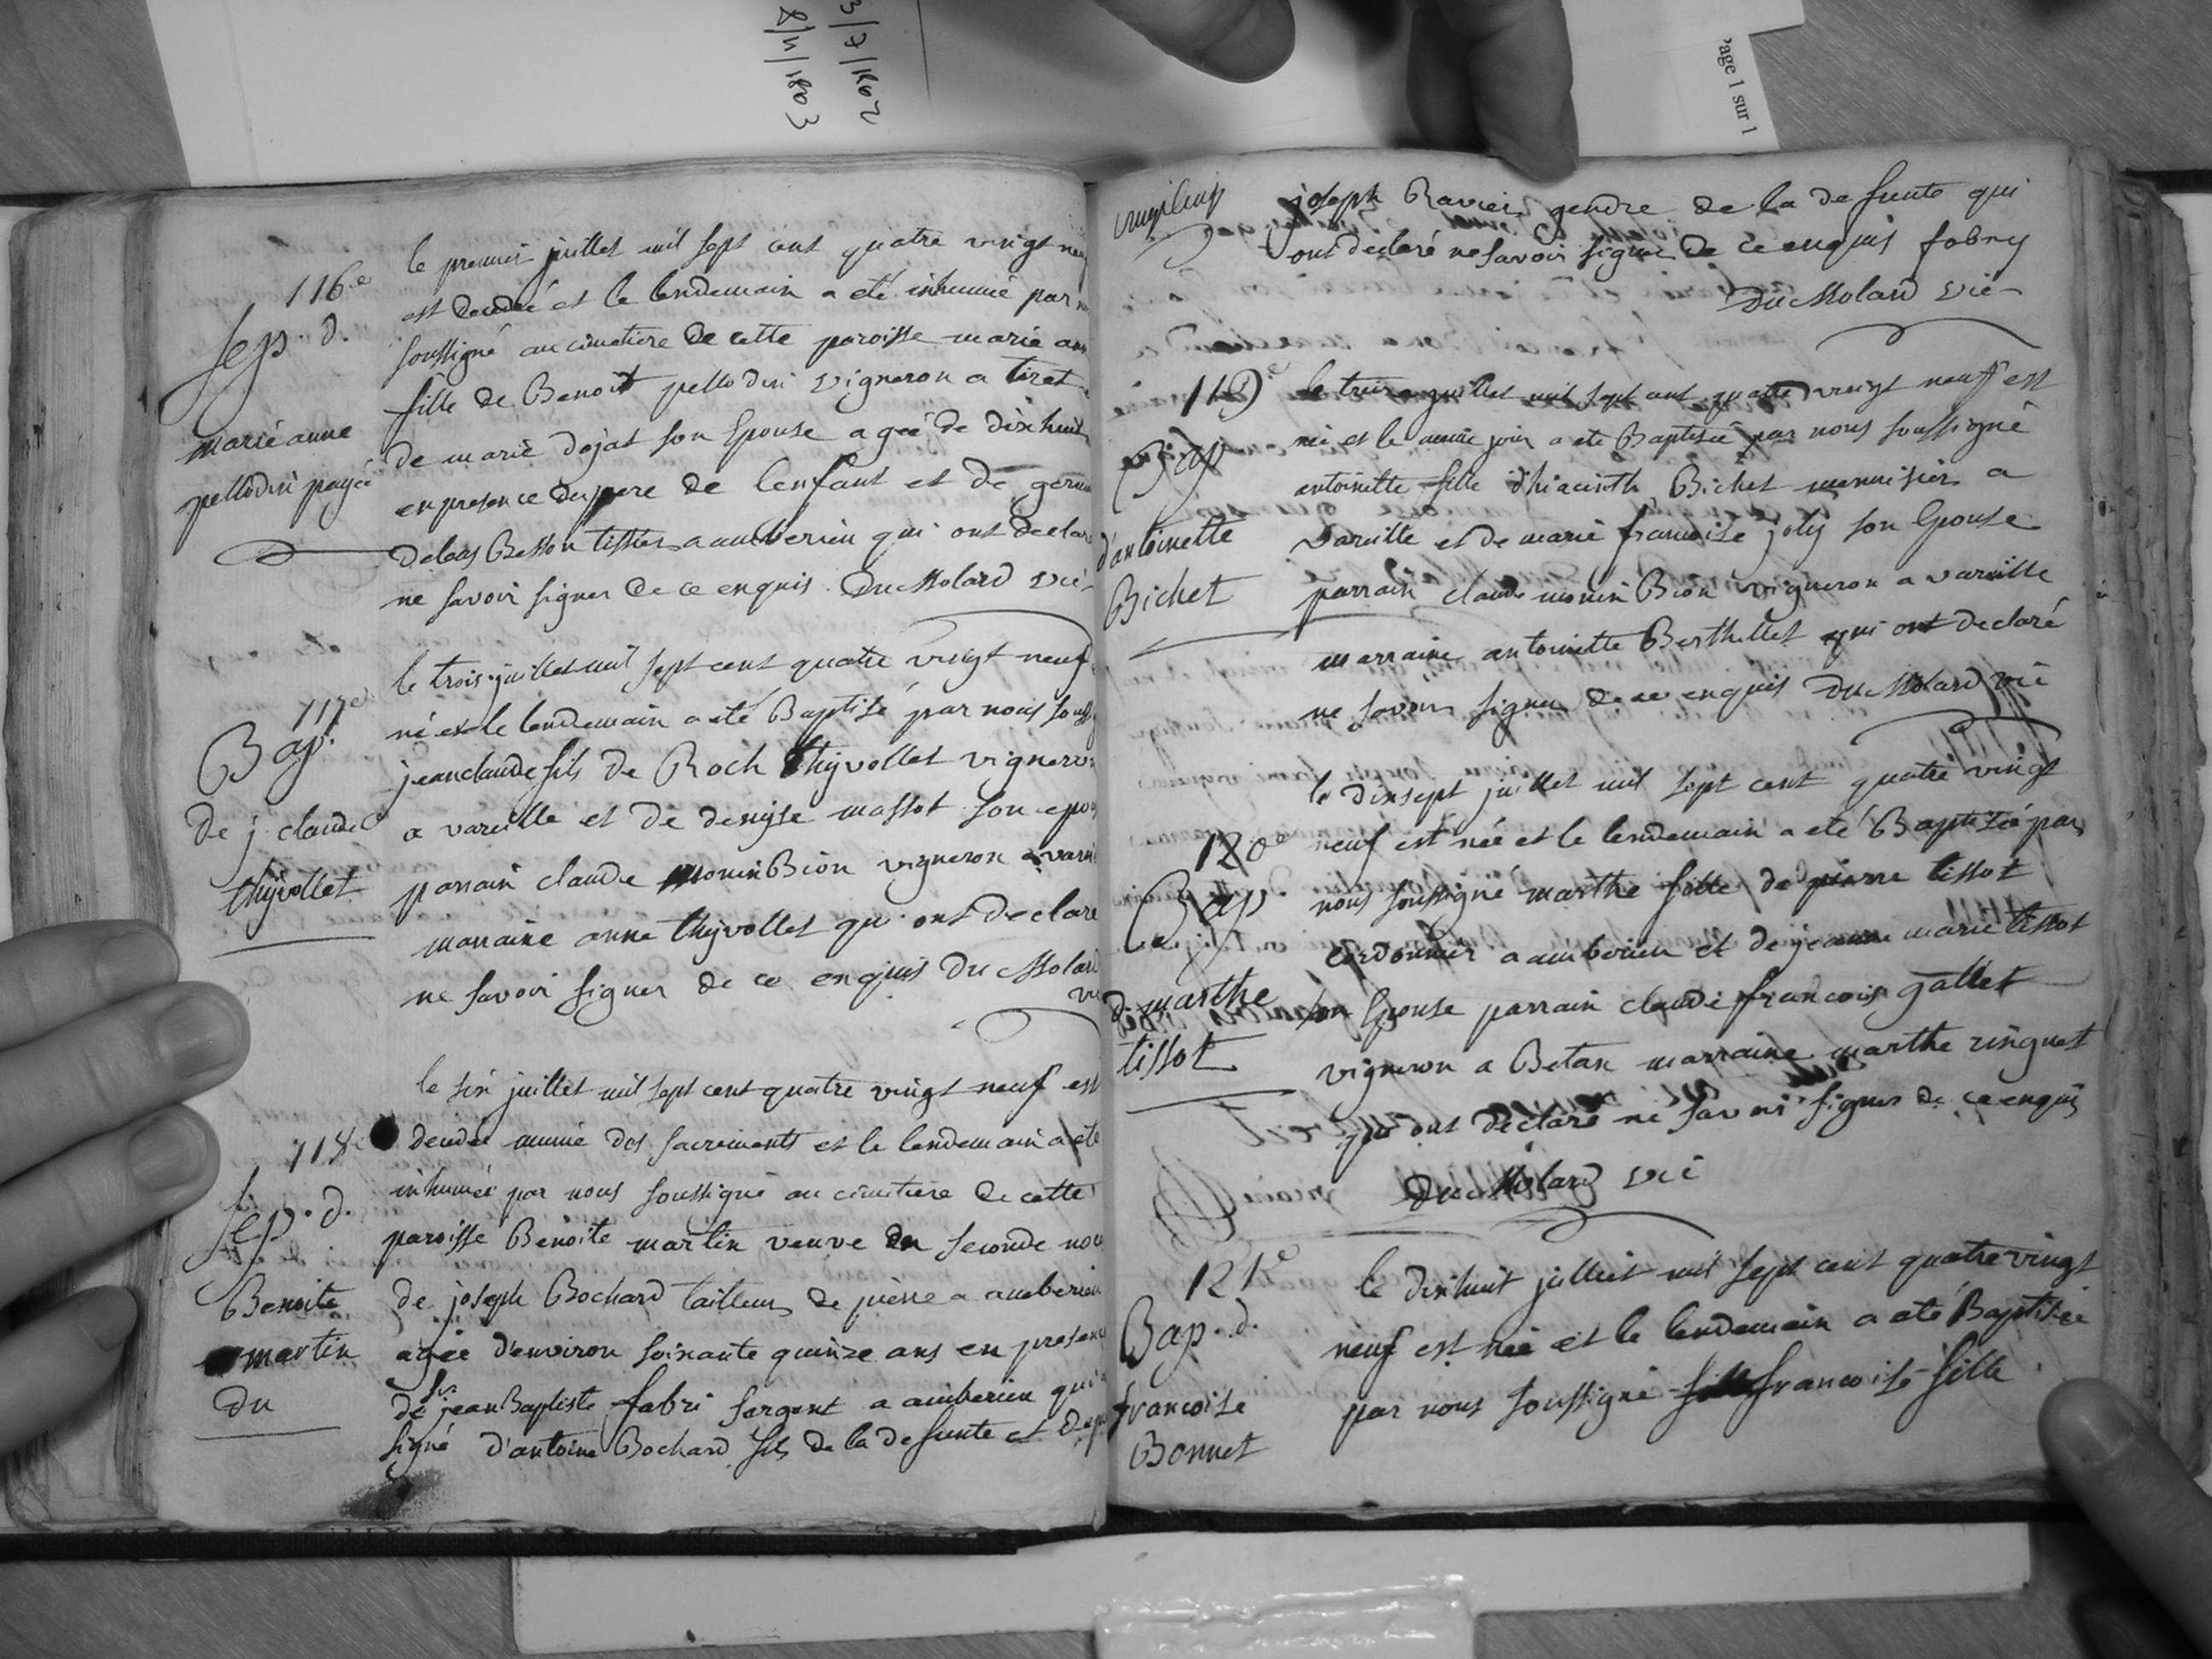 3/7/1802
8/11/1803
Page 1 sur 1
116e
Sep. d.
marie anne
pellodin payée
le premier juillet mil sept cent quatre vingt neuf
est decedée et le lendemain a eté inhumée par
soussigné au cimetiere de cette paroisse marie
fille de Benoit pellodin vigneron a tiret
de marie dojat son Epouse agée de dixhuit
en presence du pere de l'enfant et de
Besson tissier a amberieu qui ont declaré
ne savoir signer de ce enquis. Du Molard vic
117e
Bap.
de j. claude
thyvollet
le trois juillet mil sept cent quatre vingt neuf
né et le lendemain a eté Baptisé par nous
jean claude fils de Roch thyvollet vigneron
a vareille et de denise massot son
parrain claude moninBion vigneron a
marraine anne thyvollet qui ont declaré
ne savoir signer de ce enquis Du Molard
vic
118e
Sep. d.
Benoite
martin
du
le six juillet mil sept cent quatre vingt neuf est
decedée munie des sacrements et le lendemain a eté
inhumée par nous soussigné au cimetiere de cette
paroisse Benoite martin veuve en seconde
de joseph Bochard tailleur de pierre a amberieu
agée d'environ soixante quinze ans en presence
de sr jean Baptiste fabri sergent a amberieu qui a
signé d'antoine Bochard fils de la defunte et
vingt cinq
joseph Ravier gendre de la defunte qui
ont declaré ne savoir signer de ce enquis fabry
Du Molard vic
119e
Bap
d'antoinette
Bichet
le treize juillet mil sept cent quatre vingt neuf est
née et le meme jour a eté Baptisée par nous soussigné
antoinette fille d'hiacinth Bichet menuisier a
vareille et de marie francoise joly son Epouse
parrain claude monin Bion vigneron a vareille
marraine antoinette Berthellet qui ont declaré
ne savoir signer de ce enquis Du Molard vic
120e
Bap
de marthe
tissot
le dixsept juillet mil sept cent quatre vingt
neuf est née et le lendemain a eté Baptisée par
nous soussigné marthe fille de pierre tissot
cordonnier a amberieu et de jeanne marie tissot
son Epouse parrain claude francois gallet
vigneron a Betan marraine marthe ringuet
qui ont declaré ne savoir signer de ce enquis
Du Molard vic
121e
Bap. d.
francoise
Bonnet
le dixhuit julliet mil sept cent quatre vingt
neuf est née et le lendemain a eté Baptisée
par nous soussigné francoise fille